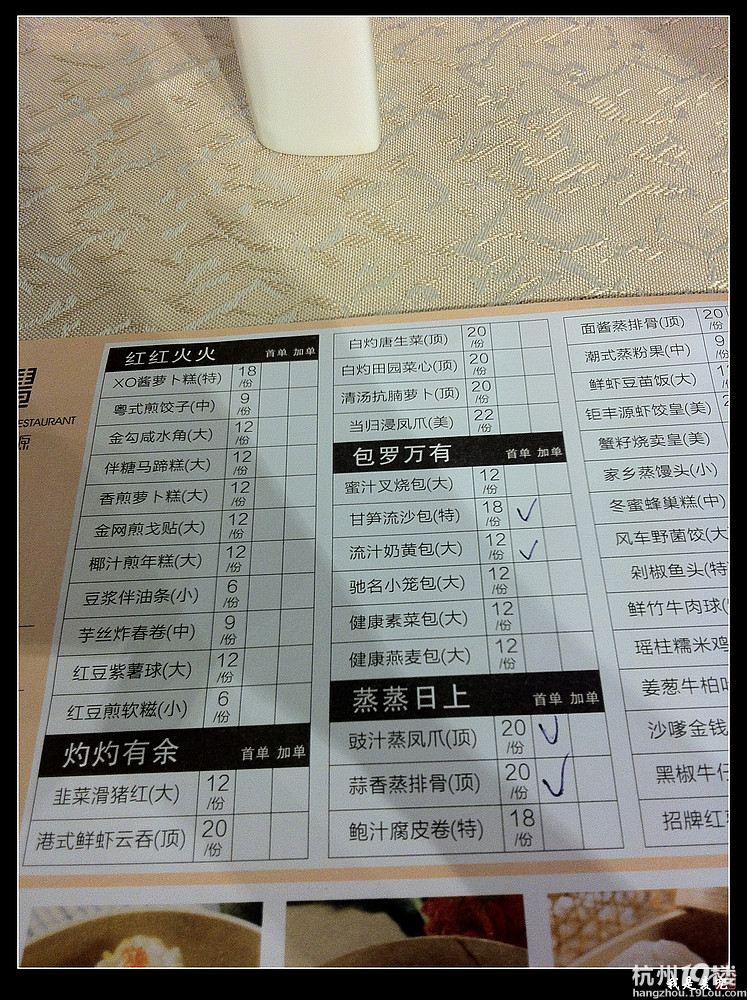 ESTAURANT
源
红红火火 首单 加单
XO酱萝卜糕(特) 18/份
粤式煎饺子(中) 9/份
金勾咸水角(大) 12/份
伴糖马蹄糕(大) 12/份
香煎萝卜糕(大) 12/份
金网煎戈贴(大) 12/份
椰汁煎年糕(大) 12/份
豆浆伴油条(小) 6/份
芋丝炸春卷(中) 9/份
红豆紫薯球(大) 12/份
红豆煎软糍(小) 6/份
灼灼有余 首单 加单
韭菜滑猪红(大) 12/份
港式鲜虾云吞(顶) 20/份
白灼唐生菜(顶) 20/份
白灼田园菜心(顶) 20/份
清汤抗腩萝卜(顶) 20/份
当归浸凤爪(美) 22/份
包罗万有 首单 加单
蜜汁叉烧包(大) 12/份
甘笋流沙包(特) 18/份
流汁奶黄包(大) 12/份
驰名小笼包(大) 12/份
健康素菜包(大) 12/份
健康燕麦包(大) 12/份
蒸蒸日上 首单 加单
豉汁蒸凤爪(顶) 20/份
蒜香蒸排骨(顶) 20/份
鲍汁腐皮卷(特) 18/份
面酱蒸排骨(顶) 20/份
潮式蒸粉果(中) 9/份
鲜虾豆苗饭(大)
钜丰源虾饺皇(美)
蟹籽烧卖皇(美)
家乡蒸馒头(小)
冬蜜蜂巢糕(中)
风车野菌饺(大
剁椒鱼头(特
鲜竹牛肉球(
瑶柱糯米鸡
姜葱牛柏叶
沙嗲金钱
黑椒牛仔
招牌红豆
杭州19楼
hangzhou.19lou.com